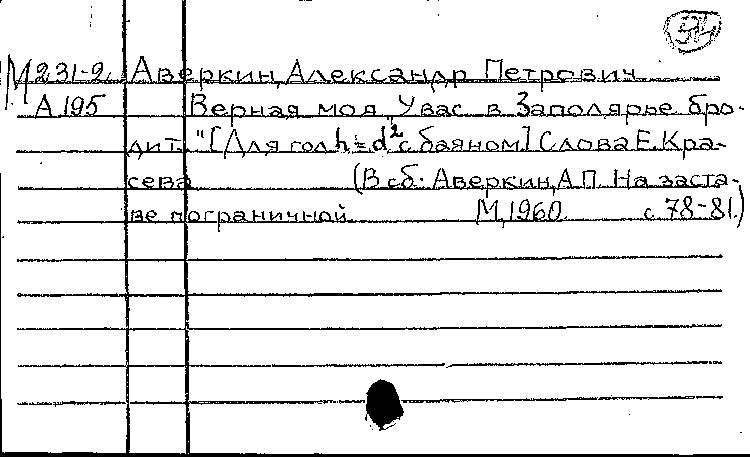 М231-2 Аверкин, Александр Петрович
А195 Верная моя „У вас в Заполярье бро-
дит..." [Для гол. h-d² с баяном] Слова Е. Кра-
сева (В сб.: Аверкин, А.П. На заста-
ве пограничной. М, 1960. с. 78-81.)